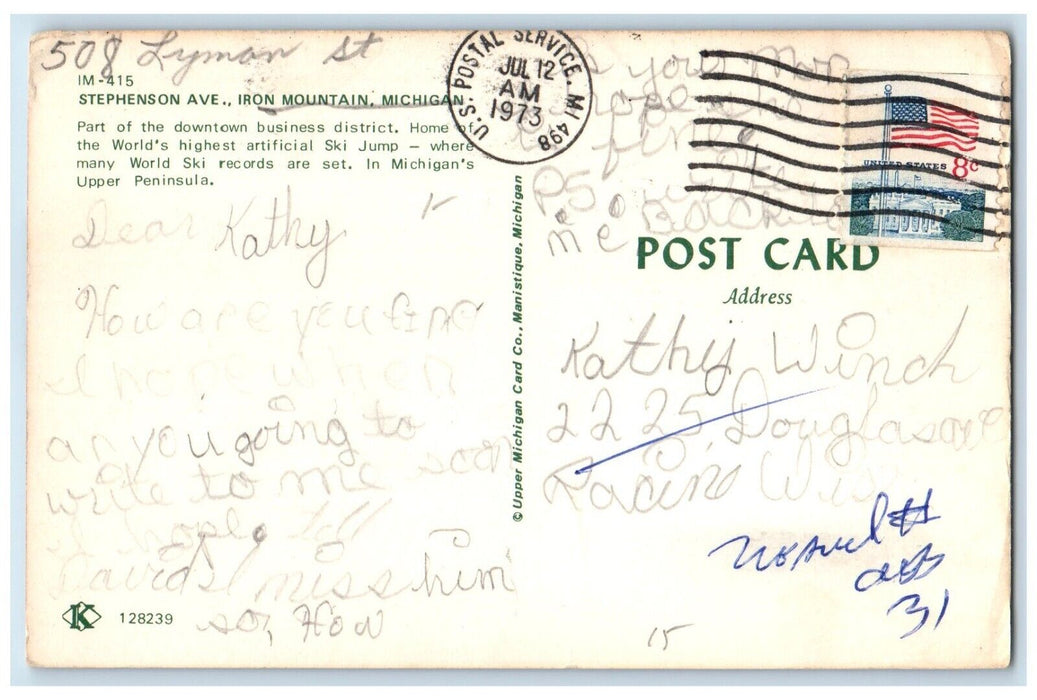 508 Lyman St
IM-415
STEPHENSON AVE., IRON MOUNTAIN, MICHIGAN
Part of the downtown business district. Home of
the World's highest artificial Ski Jump — where
many World Ski records are set. In Michigan's
Upper Peninsula.
Dear Kathy
How are you fine
I hope when
ar you going to
write to me soon
I hope
miss him
so, How
K 128239
© Upper Michigan Card Co., Manistique, Michigan
U.S. POSTAL SERVICE, MI 498
JUL 12
AM
1973
your Mom
fine
PS write
me Back
UNITED STATES 8c
POST CARD
Address
Kathy Winch
2225, Douglas ave
Racine Wis
31
15